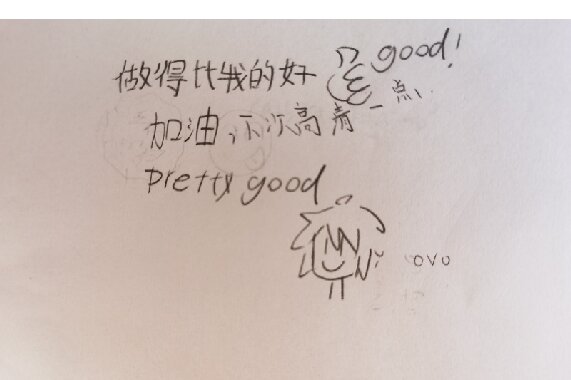 做得比我的好 good!
一点、
加油,下次高着
pretty good
ovo